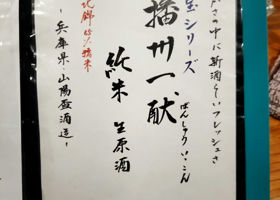 さの中に新酒らしいフレッシュさ
シリーズ
播州一献
ばんしゅういっこん
純米 生原酒
北錦65%精米
-兵庫県・山陽盃酒造-